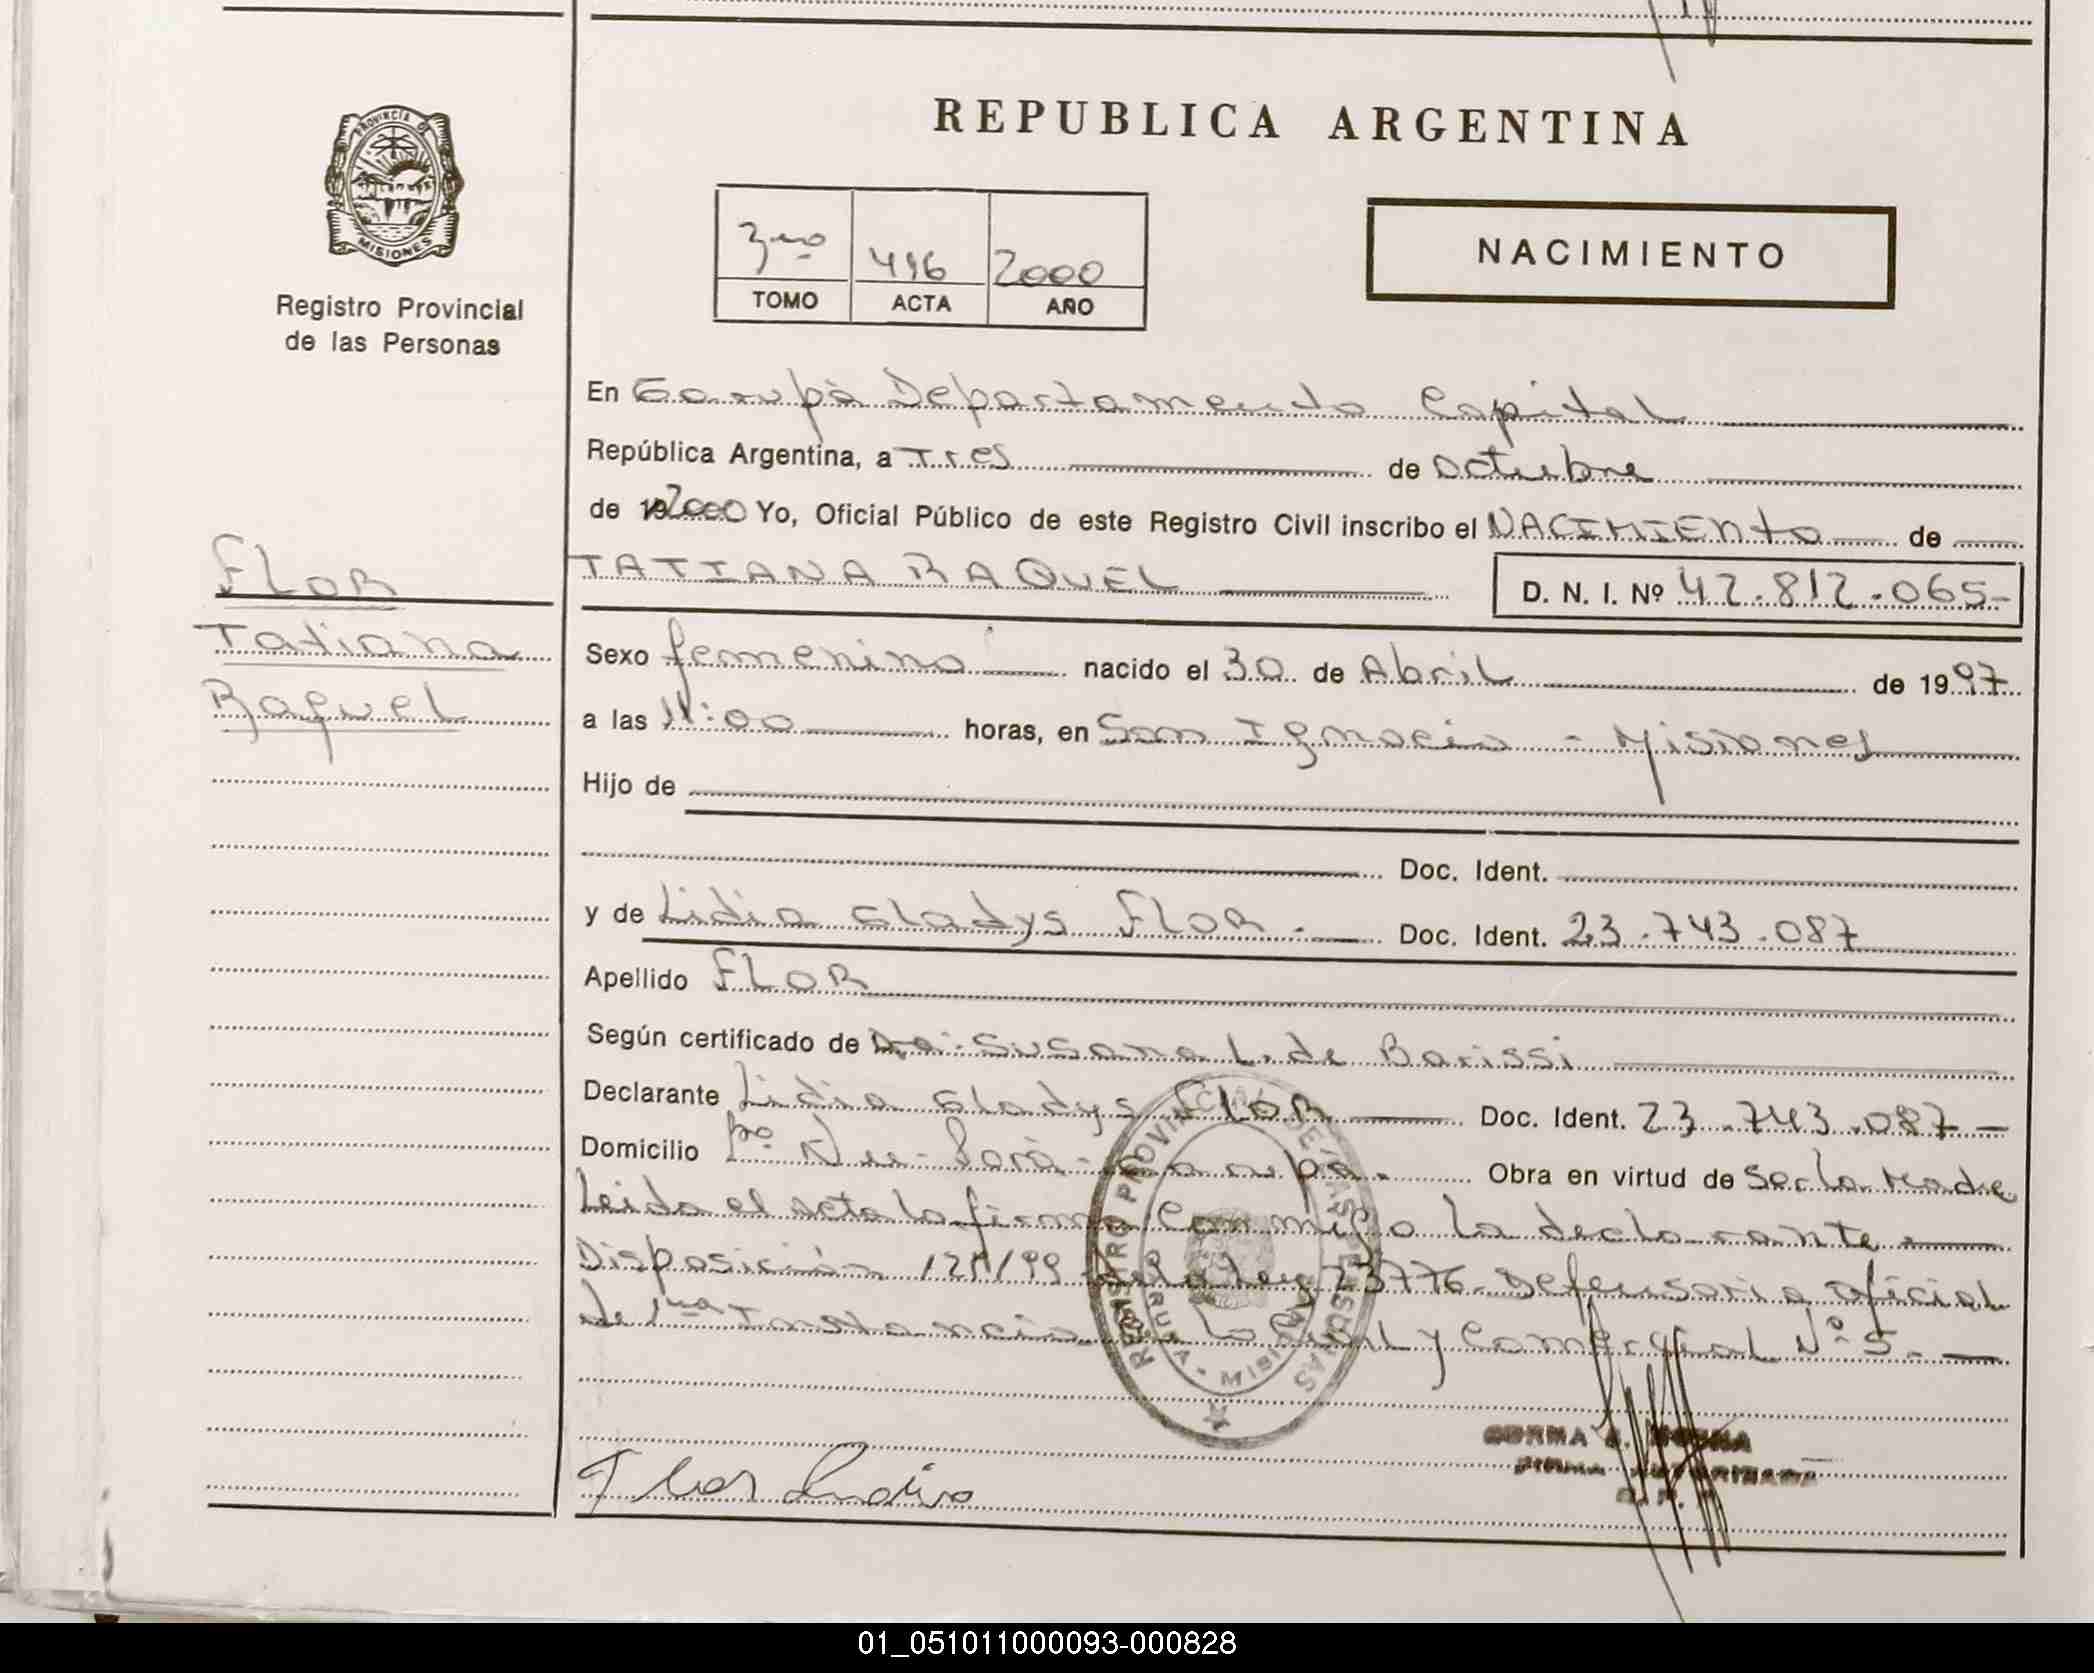 PROVINCIA DE
MISIONES
Registro Provincial
de las Personas
REPUBLICA ARGENTINA
3ero 496 2000
TOMO ACTA AÑO
NACIMIENTO
En Garupá Departamento Capital
República Argentina, a Tres de octubre
de 2000 Yo, Oficial Público de este Registro Civil inscribo el NACIMIENTO de
TATIANA RAQUEL D. N. I. Nº 42.812.065-
FLOR
Tatiana
Raquel
Sexo femenino nacido el 30 de Abril de 1997
a las 11:00 horas, en San Ignacio - Misiones
Hijo de
Doc. Ident.
y de Lidia Gladys FLOR. Doc. Ident. 23.743.087
Apellido FLOR
Según certificado de Dra. Susana L. de Barissi
Declarante Lidia Gladys FLOR Doc. Ident. 23.743.087-
Domicilio Bº Ñu-Porá-Garupá. Obra en virtud de Ser la Madre
Leida el acta la firma conmigo la declarante
Disposición /99 de la Ley 23776- Defensoria oficial
de 1ra Instancia en lo Civil y Comercial Nº 5.-
REGISTRO PROVINCIAL DE LAS PERSONAS
Flor Lidia
FIRMA AUTORIZADA
01_051011000093-000828